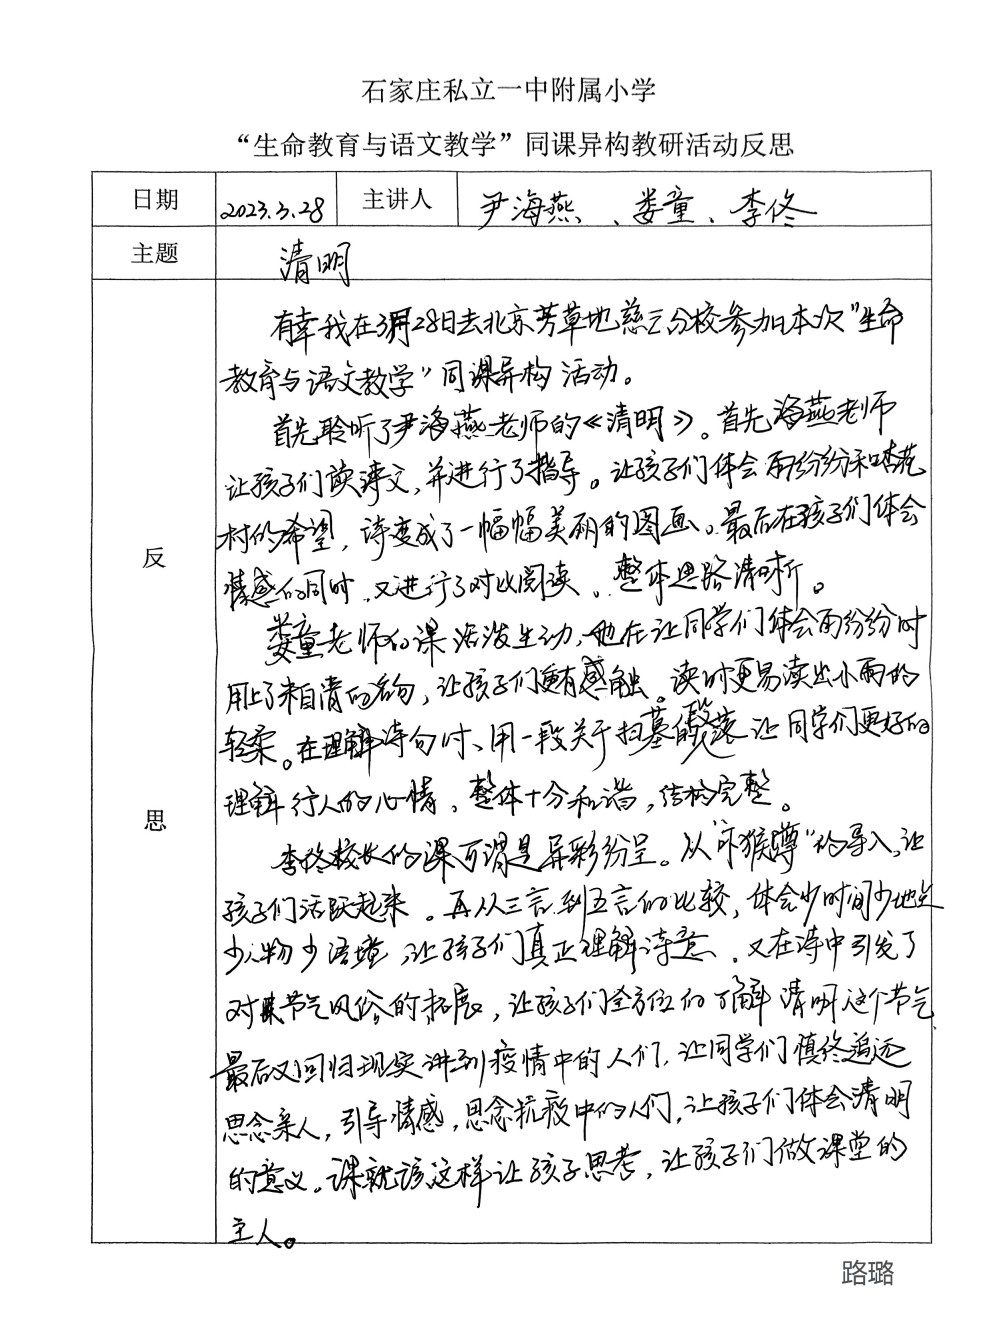 石家庄私立一中附属小学
“生命教育与语文教学”同课异构教研活动反思
日期 2023.3.28 主讲人 尹海燕、娄童、李佟
主题 清明
反思
有幸我在3月28日去北京芳草地慈云分校参加本次“生命
教育与语文教学”同课异构活动。
首先聆听了尹海燕老师的《清明》。首先海燕老师
让孩子们读课文,并进行了指导。让孩子们体会雨纷纷和杏花
村的希望,诗变成了一幅幅美丽的图画。最后在孩子们体会
情感的同时,又进行了对比阅读。整体思路清晰。
娄童老师的课活泼生动,他在让同学们体会雨纷纷时
用上了朱自清的名句,让孩子们更有感触。读时更易读出小雨的
轻柔。在理解诗句时、用一段关于扫墓的段落让同学们更好的
理解行人的心情,整体十分和谐,结构完整。
李佟校长的课可谓是异彩纷呈。从“沐猴”的导入,让
孩子们活跃起来。再从三言到五言的比较,体会少时间少地点
少人物少语境,让孩子们真正理解诗意。又在诗中引发了
对节气风俗的拓展,让孩子们全方位的了解清明这个节气
最后又回归现实讲到疫情中的人们,让同学们慎终追远
思念亲人,引导情感,思念抗疫中的人们,让孩子们体会清明
的意义。课就该这样让孩子思考,让孩子们做课堂的
主人。
路璐